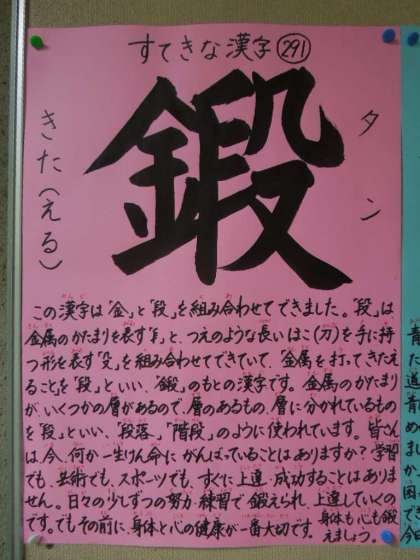 すてきな漢字 291
鍛
タン
きた(える)
この漢字は「金」と「段」を組み合わせてできました。「段」は
金属のかたまりを表す「」と、つえのような長いほこ(刀)を手に持
つ形を表す「殳」を組み合わせてできていて、「金属を打ってきたえ
ること」を「段」といい、「鍛」のもとの漢字です。金属のかたまり
が、いくつかの層があるので、層のあるもの、層に分かれているもの
を「段」といい、「段落」、「階段」のように使われています。皆さん
は、今、何か一生けん命にがんばっていることはありますか?学習
でも、芸術でも、スポーツでも、すぐに上達・成功することはありま
せん。日々の少しずつの努力・練習で鍛えられ、上達していくの
です。でもその前に、身体と心の健康が一番大切です。身体も心も鍛
えましょう。